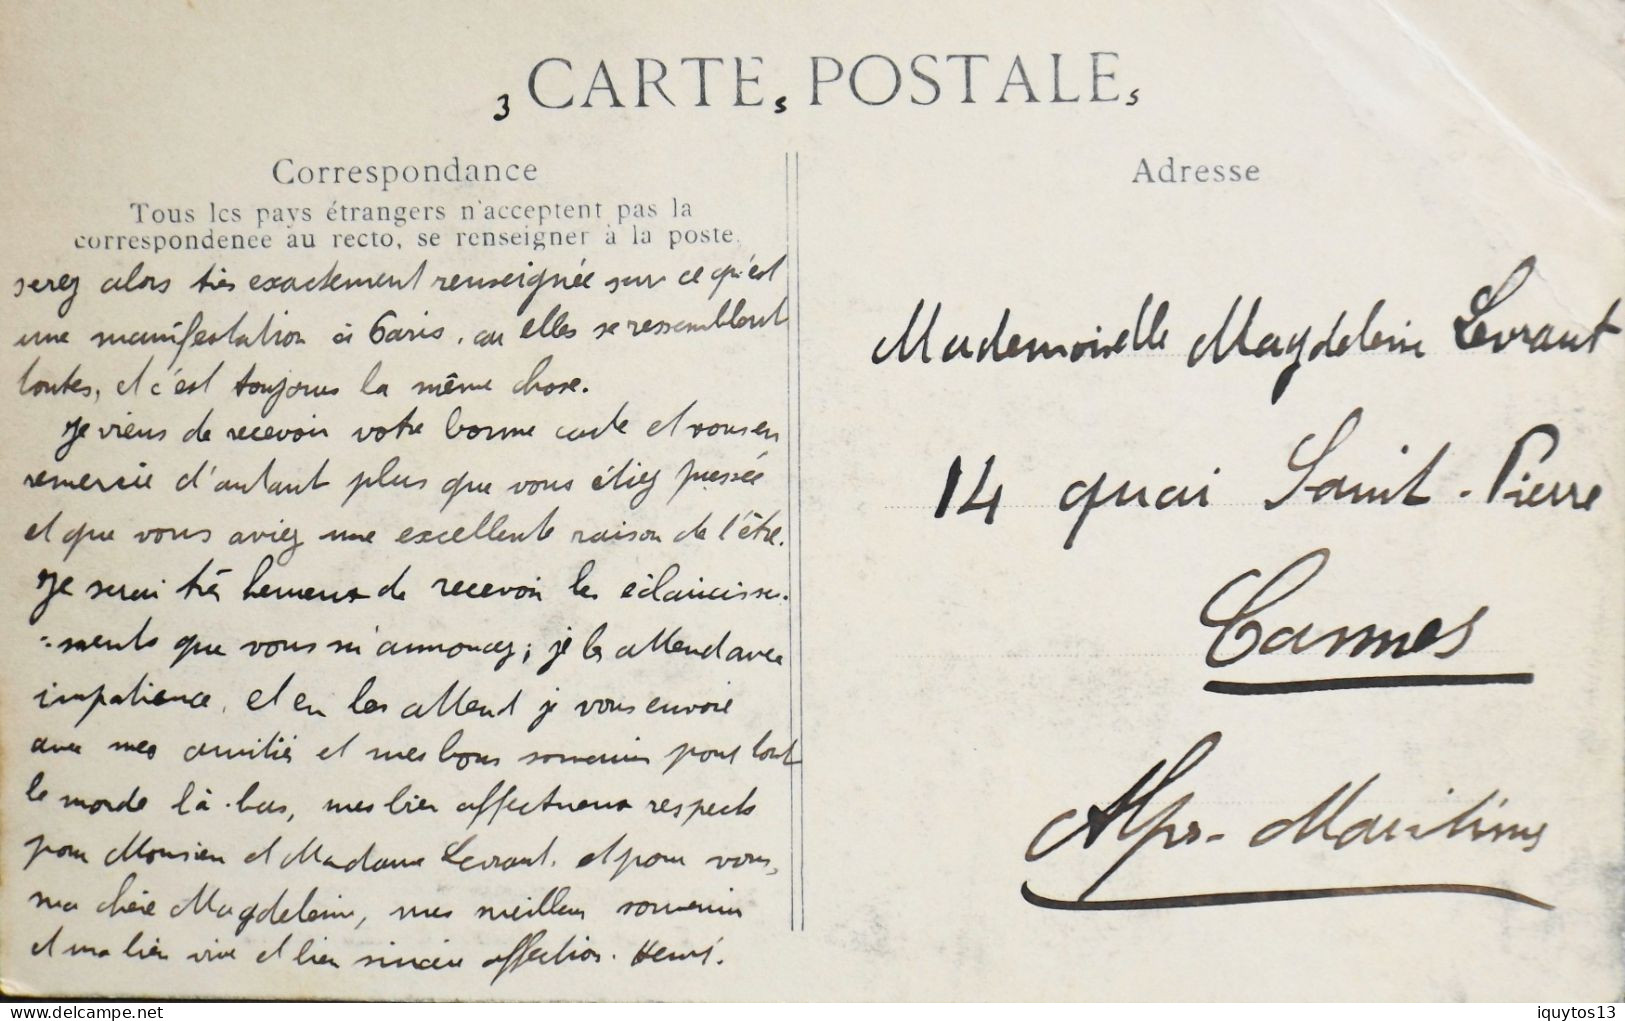 3 CARTES POSTALES
Correspondance
Tous les pays étrangers n'acceptent pas la
correspondence au recto, se renseigner à la poste.
serez alors très exactement renseignée sur ce qu'est
une manifestation à Paris, car elles se ressemblent
toutes, et c'est toujours la même chose.
Je viens de recevoir votre bonne carte et vous en
remercie d'autant plus que vous étiez pressée
et que vous aviez une excellente raison de l'être.
Je serai très heureux de recevoir les éclaircisse-
-ments que vous m'annoncez; je les attend avec
impatience, et en les attend je vous envoie
avec mes amitiés et mes bons souvenirs pour tout
le monde là-bas, mes bien affectueux respects
pour Monsieur et Madame Levraut, et pour vous,
ma chère Magdeleine, mes meilleurs souvenirs
et ma bien vive et bien sincère affection. Henri.
Adresse
Mademoiselle Magdeleine Levraut
14 quai Saint-Pierre
Cannes
Alpes-Maritimes
delcampe.net
iquytos13